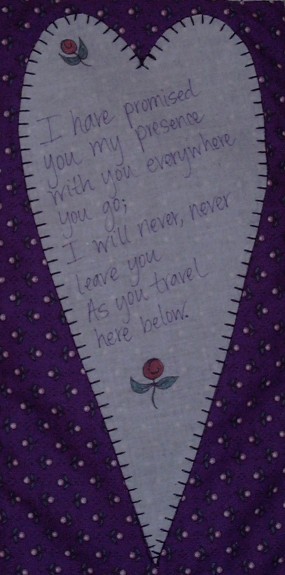 I have promised
you my presence
with you everywhere
you go;
I will never, never
leave you
As you travel
here below.